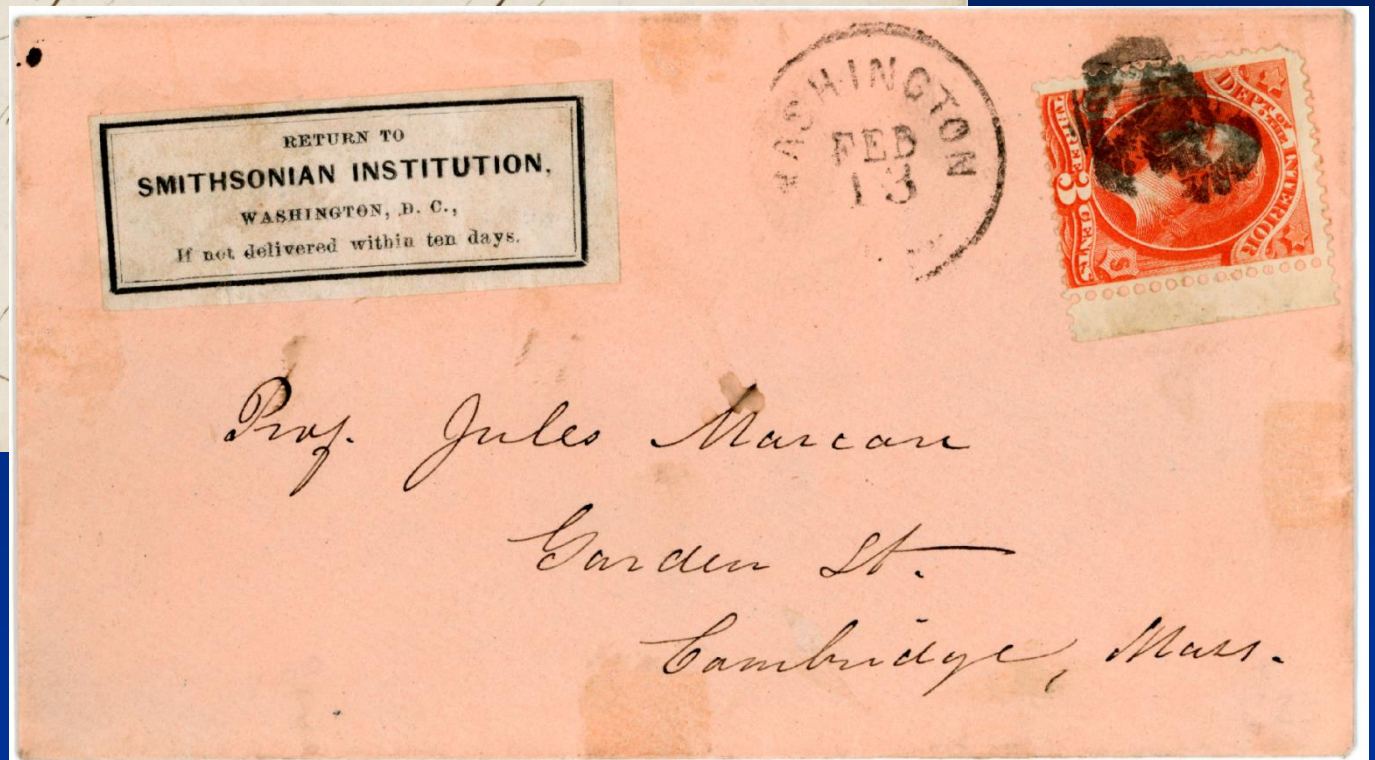 RETURN TO
SMITHSONIAN INSTITUTION,
WASHINGTON, D. C.,
If not delivered within ten days.
WASHINGTON
FEB
13
DEPT. OF THE INTERIOR
THREE 3 CENTS
Prof. Jules Marcou
Garden St.
Cambridge, Mass.